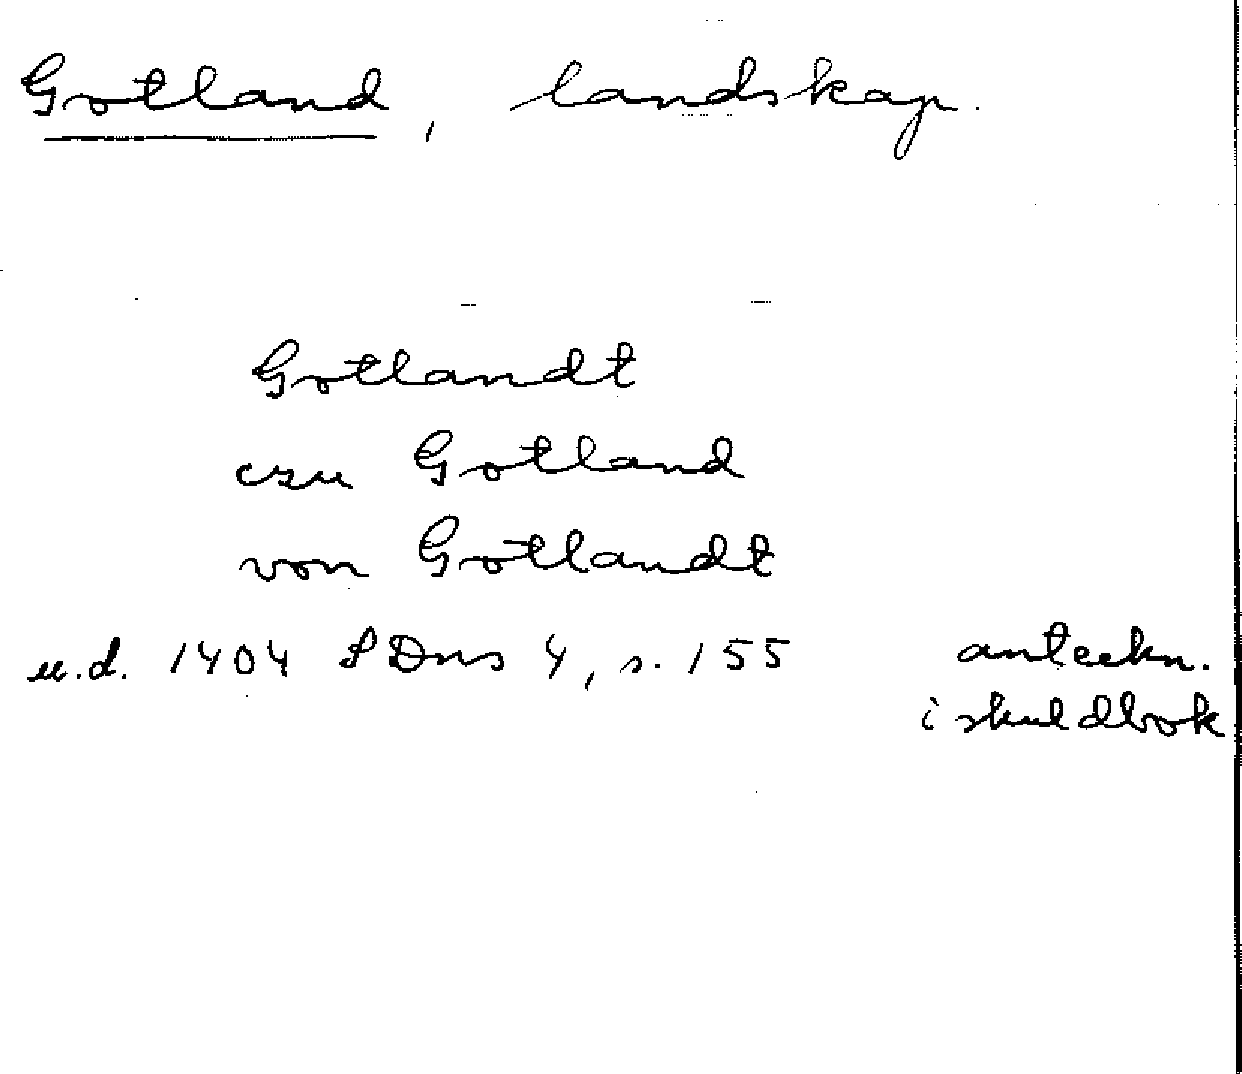 Gotland, landskap.
Gotlandt
czu Gotland
von Gotlandt
u.d. 1404 SDns 4, s. 155 anteckn.
i skuldbok